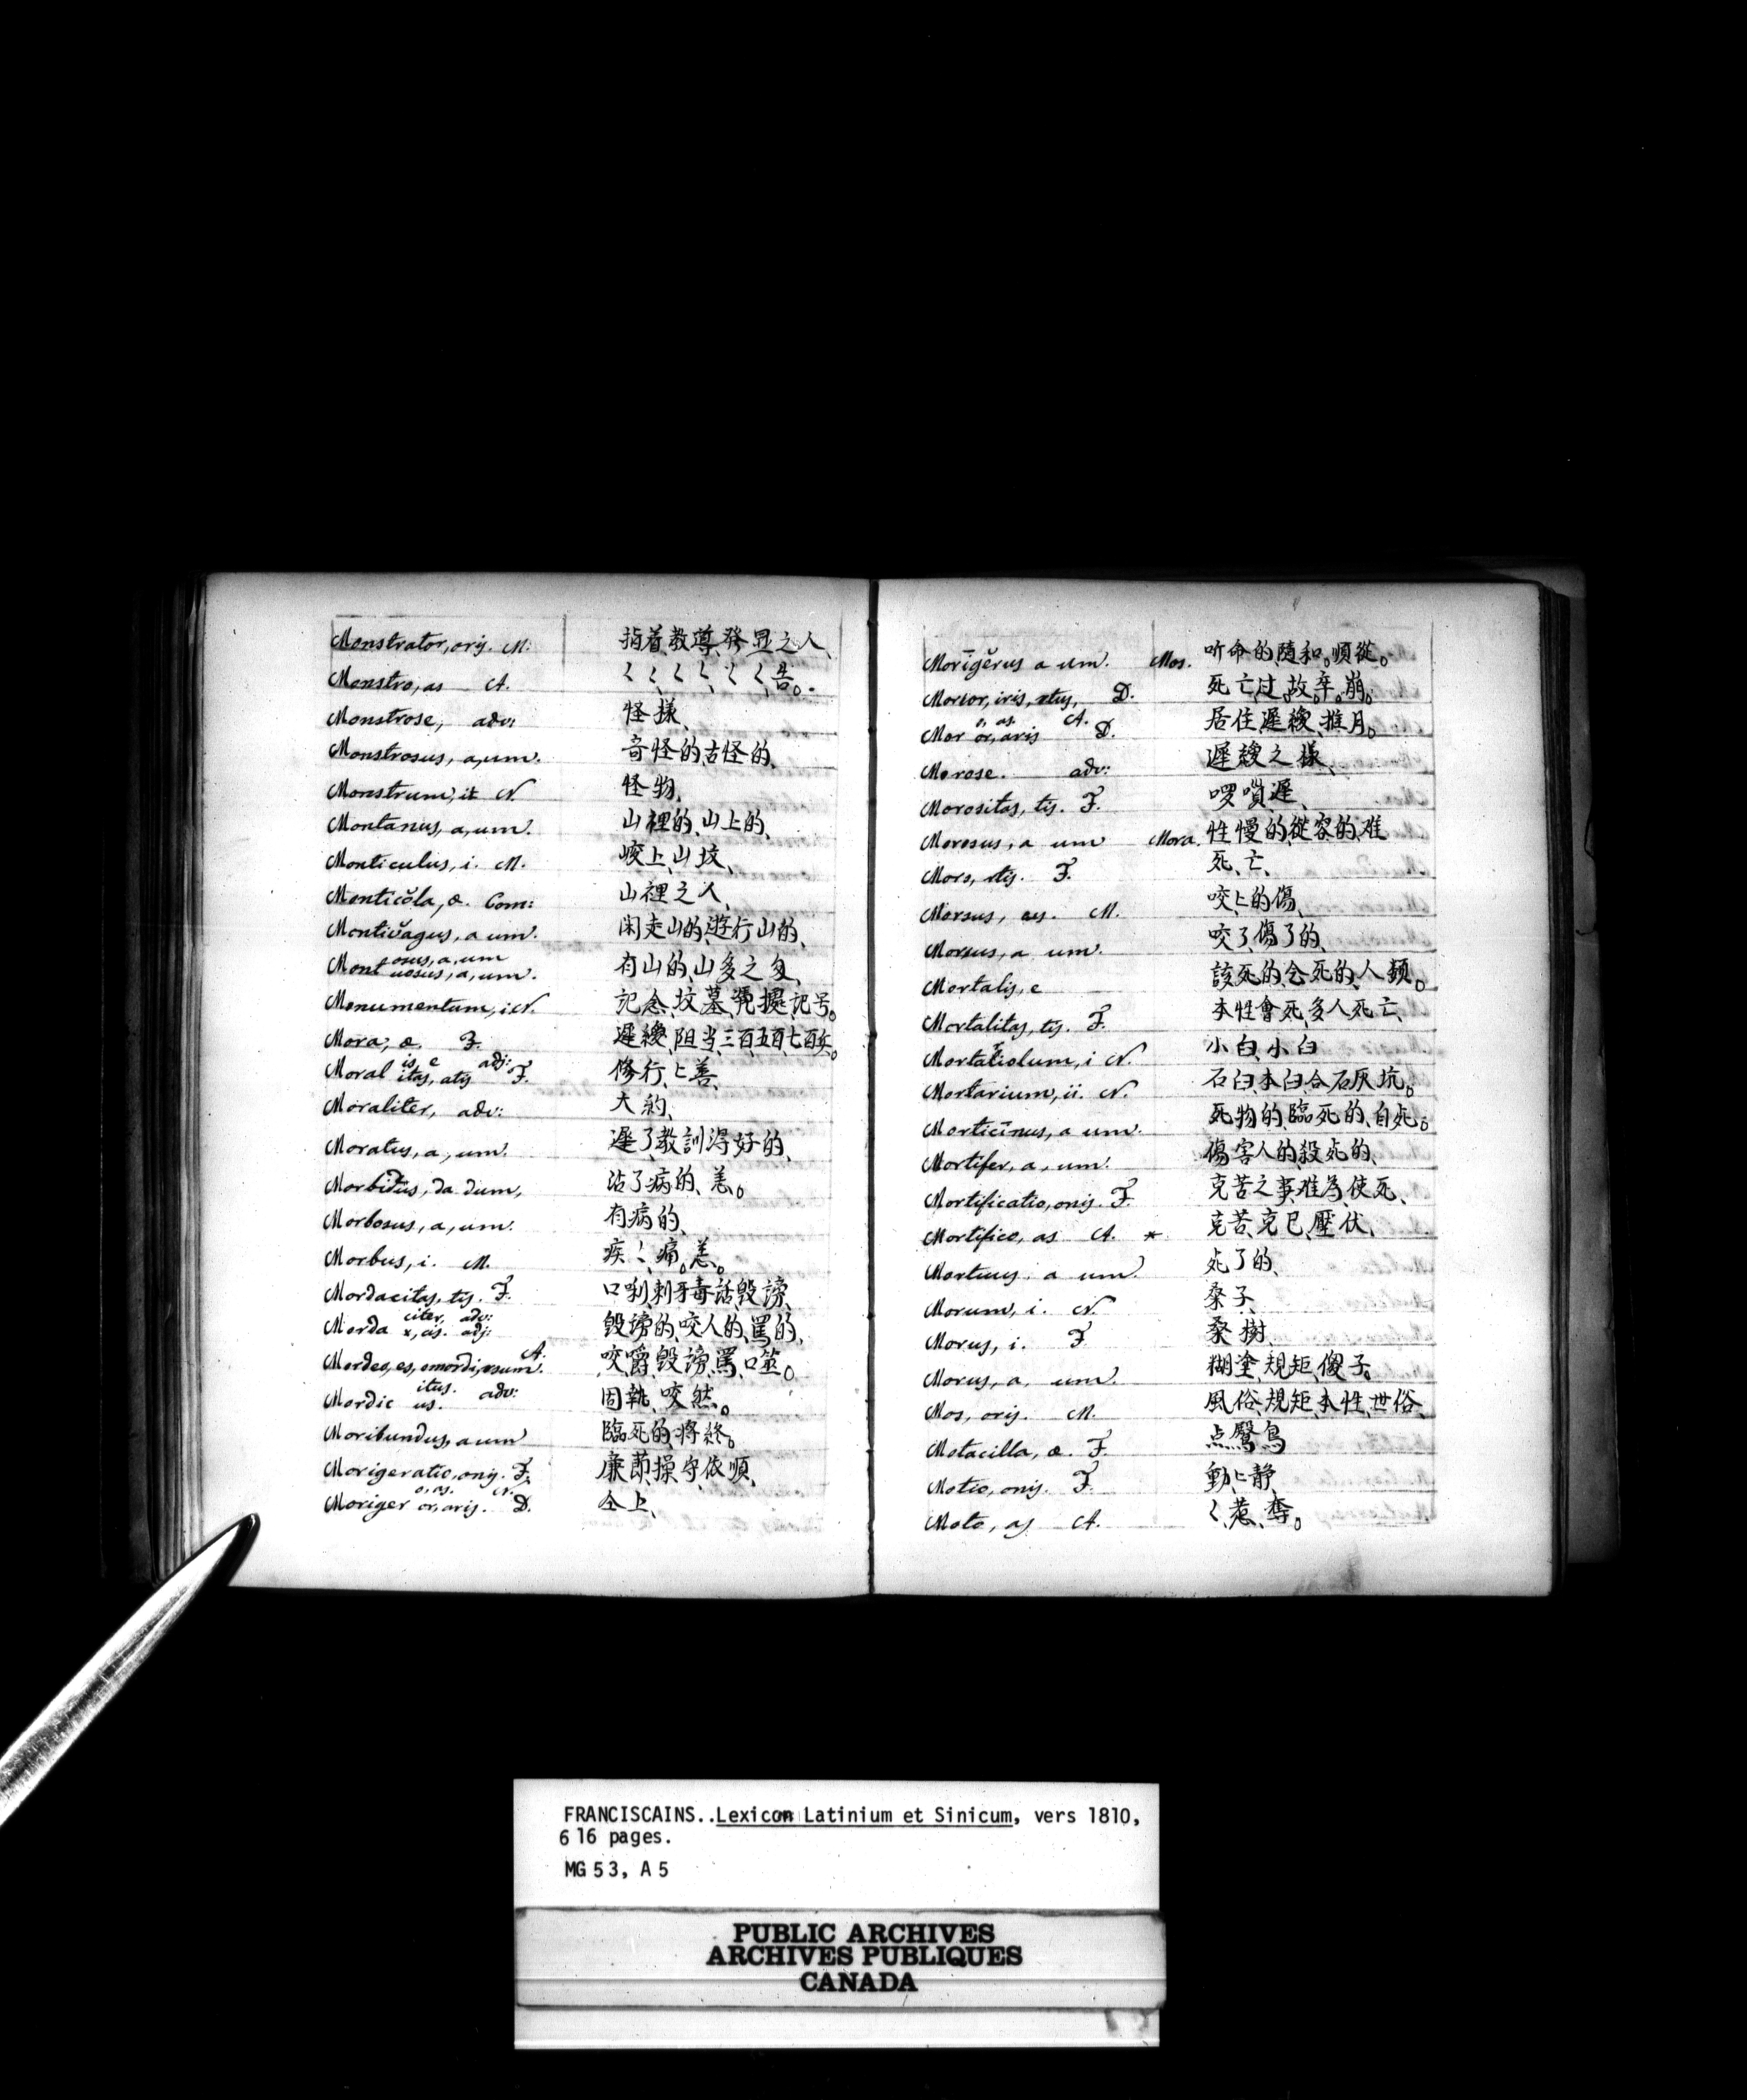 Monstrator, oris. M: 指着、教導、發显之人、
Monstro, as A. 〱〱、〱〱、〱〱、告。
Monstrose, adv: 怪様、
Monstrosus, a, um. 奇怪的、古怪的、
Monstrum, i N. 怪物、
Montanus, a, um. 山裡的、山上的、
Monticulus, i. M. 峧上、山坟、
Monticŏla, æ. Com: 山裡之人、
Montivăgus, a um. 闲走山的、遊行山的、
Mont osus, a, um uosus, a, um. 有山的、山多之
Monumentum, i N. 記念、坟墓、號㨿、記号。
Mora, æ F. 遲緩、阻当、三百五百七百兵。
Moral is, e adj: itas, atis F. 修行、〻善、
Moraliter, adv: 大約、
Moratus, a, um. 遲了、教訓得好的、
Morbidus, da dum, 沾了病的、恙。
Morbosus, a, um. 有病的、
Morbus, i. M. 疾〻、痛。恙。
Mordacitas, tis. F. 口唎、刺牙、毒話、毀謗、
Morda citer, adv: x, cis. adj: 毀謗的、咬人的、罵的、
Mordeo, es, momordi, rsum. A. 咬、嚼、毀謗、罵、噬。
Mordic itus. us. adv: 固執、咬然。
Moribundus, a um 臨死的、將終。
Morigeratio, onis. F. 廉莭、操守、依順、
Moriger o, as. N. or, aris. D. 仝上、
Morīgĕrus a um. Mos. 听命的、隨和。順從。
Morior, iris, rtuus, D. 死亡、过、故、卒。崩。
Mor o, as. A. or, aris D. 居住、遲緩、推月。
Morose. adv: 遲緩之様、
Morositas, tis. F. 啰嗩、遲、
Morosus, a um Mora. 性慢的、從容的、难
Mors, rtis. F. 死、亡、
Morsus, us. M. 咬、〻的傷、
Morsus, a um. 咬了、傷了的、
Mortalis, e 該死的、會死的、人類。
Mortalitas, tis. F. 本性會死、多人死亡、
Mortariolum, i N. 小臼、小臼
Mortarium, ii. N. 石臼、本臼、合石灰坑。
Morticīnus, a um. 死物的、臨死的、自死。
Mortifer, a, um. 傷害人的、殺死的、
Mortificatio, onis. F. 克苦之事、难為、使死、
Mortifico, as A. * 克苦、克己、壓伏、
Mortuus. a um. 死了的、
Morum, i. N. 桑子、
Morus, i. F. 桑樹、
Morus, a, um. 糊塗、規矩、傻子。
Mos, oris. M. 風俗、規矩、本性、世俗、
Motacilla, æ. F. 点臀鳥
Motio, onis. F. 動、〻静、
Moto, as A. 〱、惹、奪。
FRANCISCAINS..Lexicon Latinium et Sinicum, vers 1810,
616 pages.
MG 53, A 5
PUBLIC ARCHIVES
ARCHIVES PUBLIQUES
CANADA